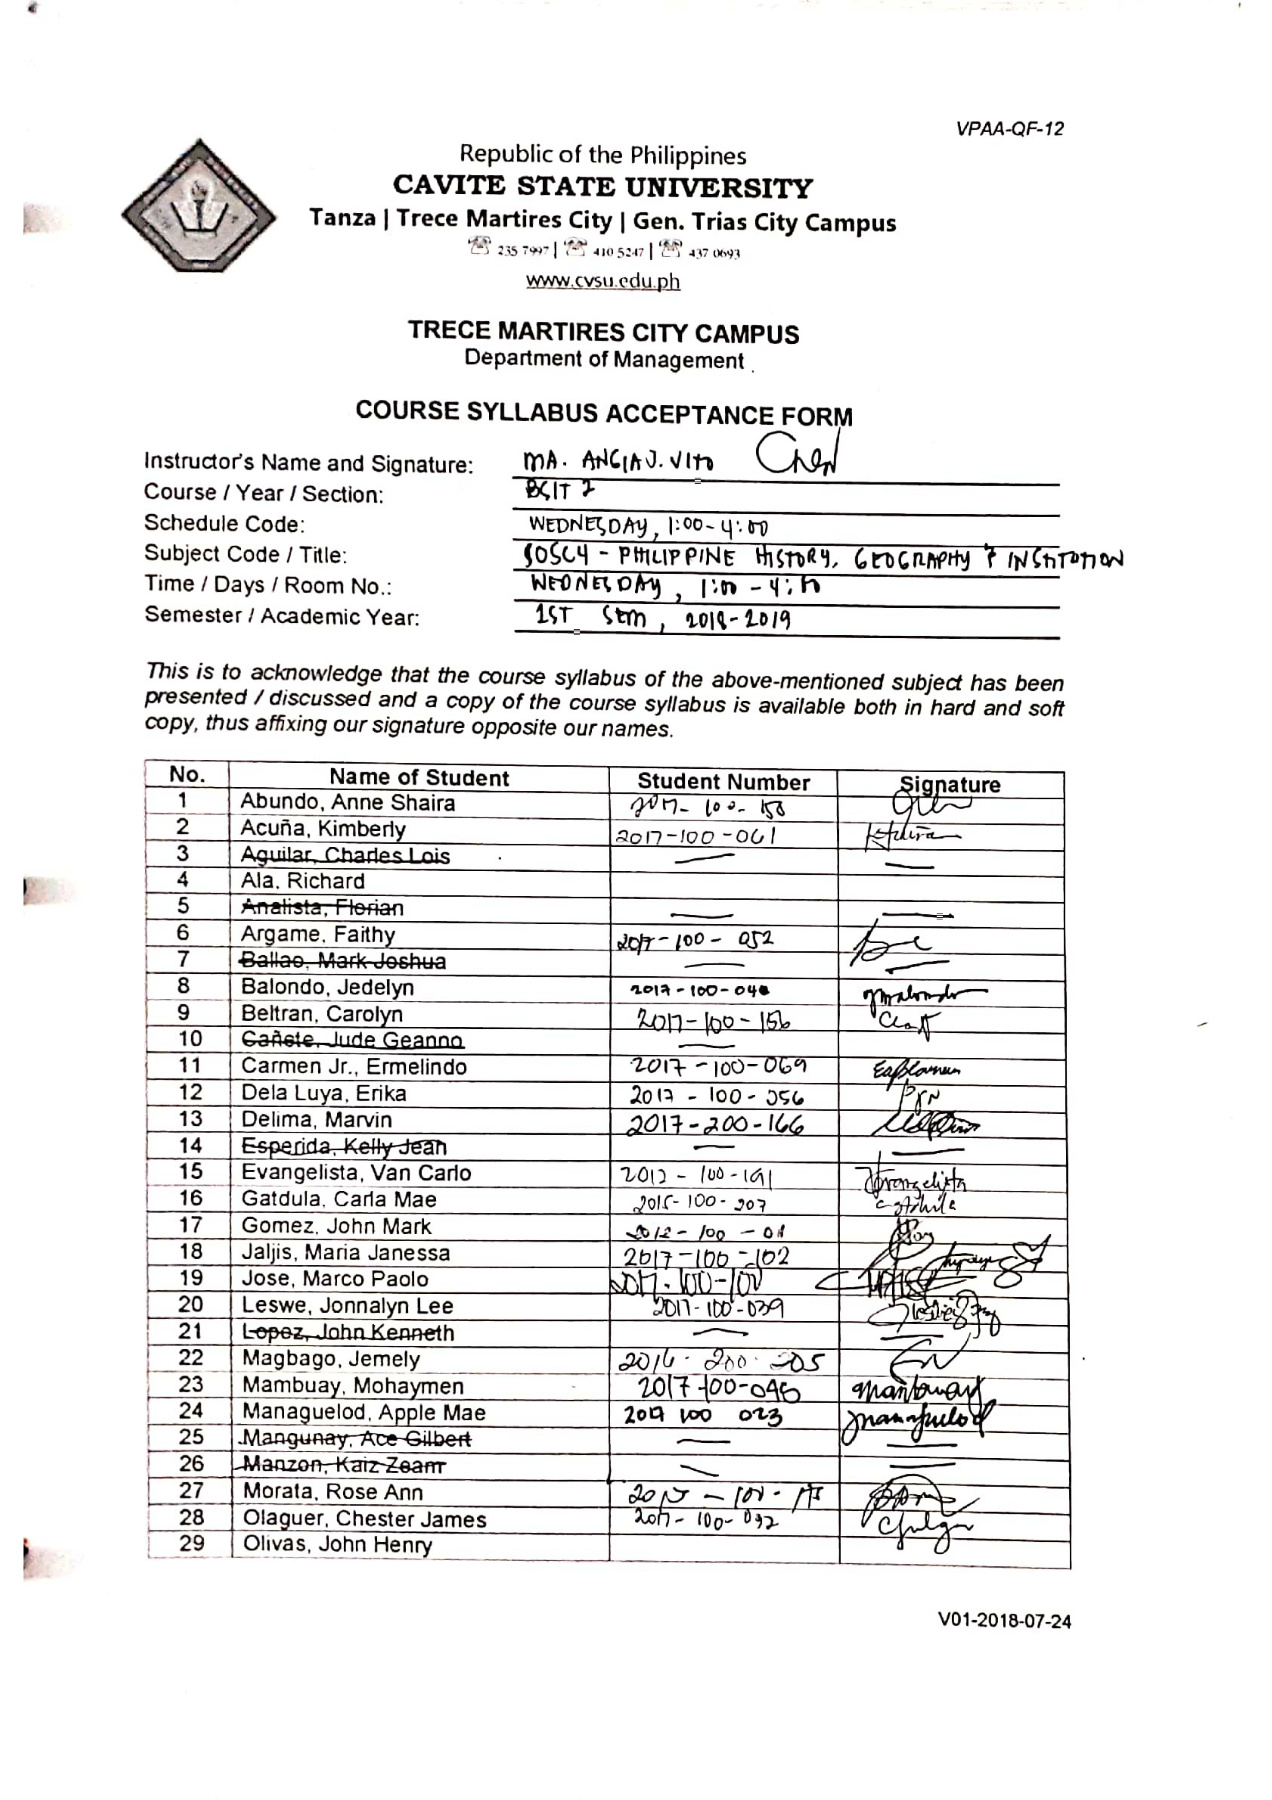 VPAA-QF-12
Republic of the Philippines
CAVITE STATE UNIVERSITY
Tanza | Trece Martires City | Gen. Trias City Campus
☏ 235 7997 | ☏ 410 5247 | ☏ 437 0693
www.cvsu.edu.ph
TRECE MARTIRES CITY CAMPUS
Department of Management
COURSE SYLLABUS ACCEPTANCE FORM
Instructor's Name and Signature: MA. J. VITO
Course / Year / Section: BSIT 2
Schedule Code: WEDNESDAY, 1:00-4:00
Subject Code / Title: SOSC4 - PHILIPPINE HISTORY, GEOGRAPHY &
Time / Days / Room No.: WEDNESDAY, 1:00 - 4:00
Semester / Academic Year: 1ST SEM, 2018-2019
This is to acknowledge that the course syllabus of the above-mentioned subject has been
presented / discussed and a copy of the course syllabus is available both in hard and soft
copy, thus affixing our signature opposite our names.
No. Name of Student Student Number Signature
1 Abundo, Anne Shaira
2 Acuña, Kimberly 2017-100-061
3 Aguilar, Charles Lois
4 Ala, Richard
5 Analista, Florian
6 Argame, Faithy 2017-100-052
7 Ballao, Mark Joshua
8 Balondo, Jedelyn
9 Beltran, Carolyn 2017-100-156
10 Cañete, Jude Geanno
11 Carmen Jr., Ermelindo 2017-100-069
12 Dela Luya, Erika 2017-100-056
13 Delima, Marvin 2017-200-166
14 Esperida, Kelly Jean
15 Evangelista, Van Carlo
16 Gatdula, Carla Mae 2015-100-207
17 Gomez, John Mark
18 Jaljis, Maria Janessa 2017-100-102
19 Jose, Marco Paolo
20 Leswe, Jonnalyn Lee 2017-100-039
21 Lopez, John Kenneth
22 Magbago, Jemely 2016-200-205
23 Mambuay, Mohaymen 2017-100-045
24 Managuelod, Apple Mae 2017 100 023
25 Mangunay, Ace Gilbert
26 Manzon, Kaiz Zeam
27 Morata, Rose Ann
28 Olaguer, Chester James 2017-100-092
29 Olivas, John Henry
V01-2018-07-24